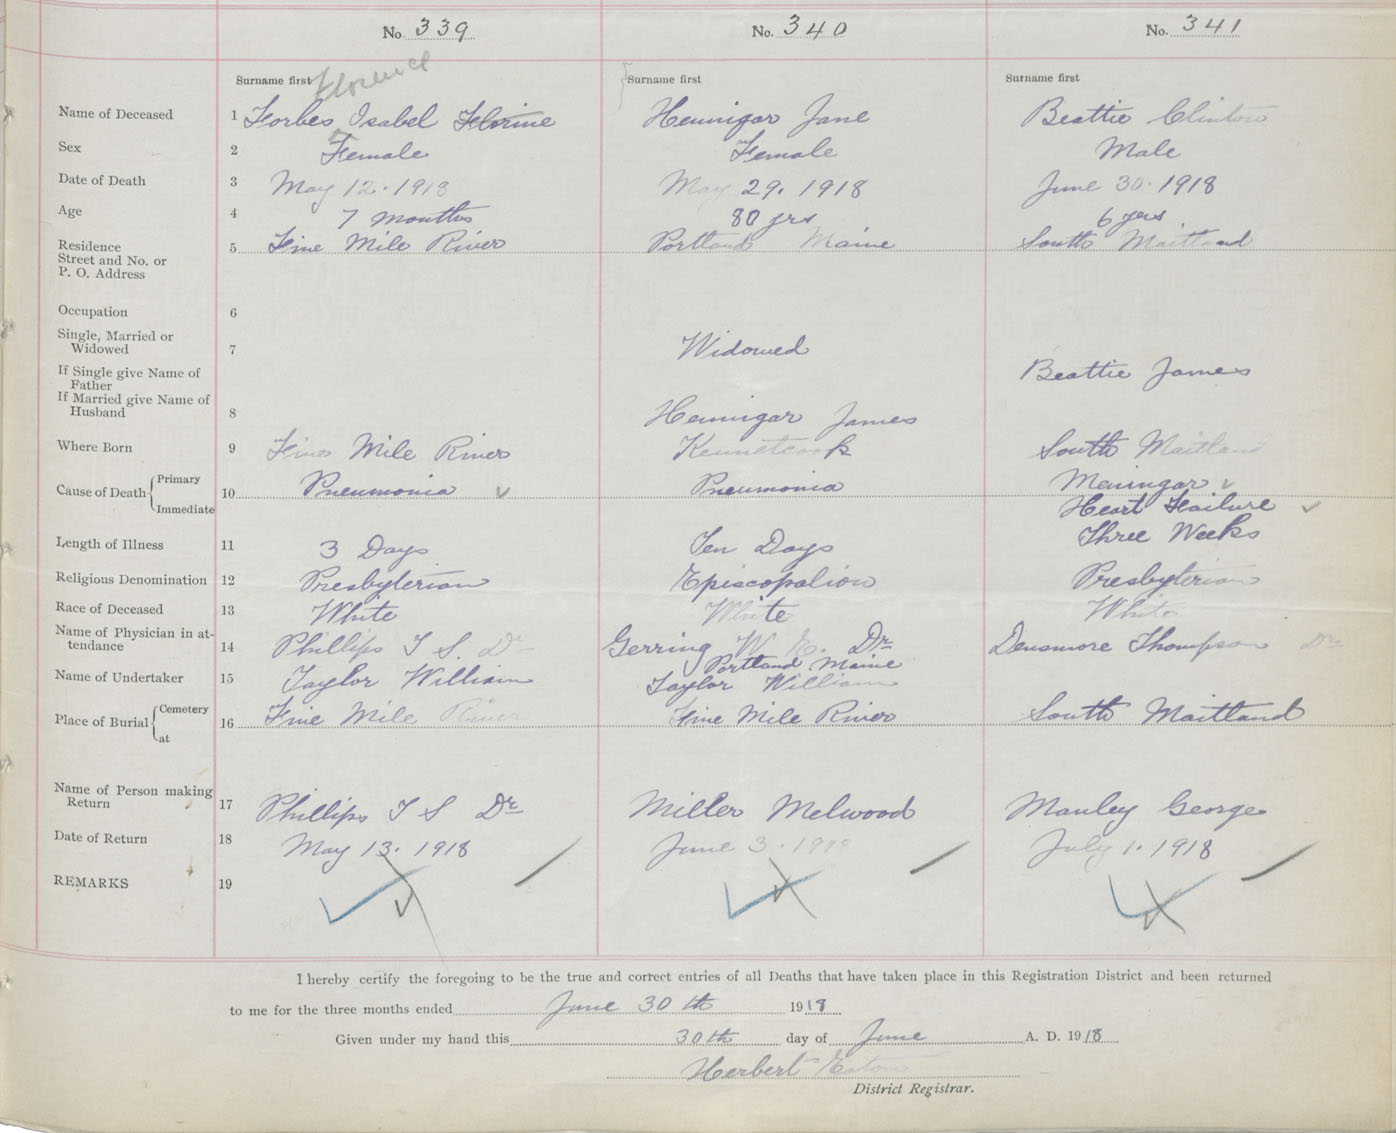 No. 339 No. 340 No. 341
Surname first Florence Surname first Surname first
Name of Deceased 1 Forbes Isabel Florine Hennigar Jane Beattie Clinton
Sex 2 Female Female Male
Date of Death 3 May 12. 1918 May 29. 1918 June 30. 1918
Age 4 7 months 80 yrs 6 yrs
Residence 5 Five Mile River Portland Maine South Maitland
Street and No. or
P. O. Address
Occupation 6
Single, Married or
Widowed 7 Widowed
If Single give Name of
Father Beattie James
If Married give Name of
Husband 8 Hennigar James
Where Born 9 Five Mile River Kennetcook South Maitland
Cause of Death Primary
10 Pneumonia Pneumonia Meningar
Immediate Heart Failure
Length of Illness 11 3 Days Ten Days Three Weeks
Religious Denomination 12 Presbyterian Episcopalion Presbyterian
Race of Deceased 13 White White White
Name of Physician in at-
tendance 14 Phillips T S. Dr Gerring W. Dr Densmore Thompson Dr
Portland Maine
Name of Undertaker 15 Taylor William Taylor William
Place of Burial Cemetery
16 Five Mile River Five Mile River South Maitland
at
Name of Person making
Return 17 Phillips T S Dr Miller Melwood Manley George
Date of Return 18 May 13. 1918 June 3. 1918 July 1. 1918
REMARKS 19
I hereby certify the foregoing to be the true and correct entries of all Deaths that have taken place in this Registration District and been returned
to me for the three months ended June 30 th 1918
Given under my hand this 30th day of June A. D. 1918
Herbert Eaton
District Registrar.